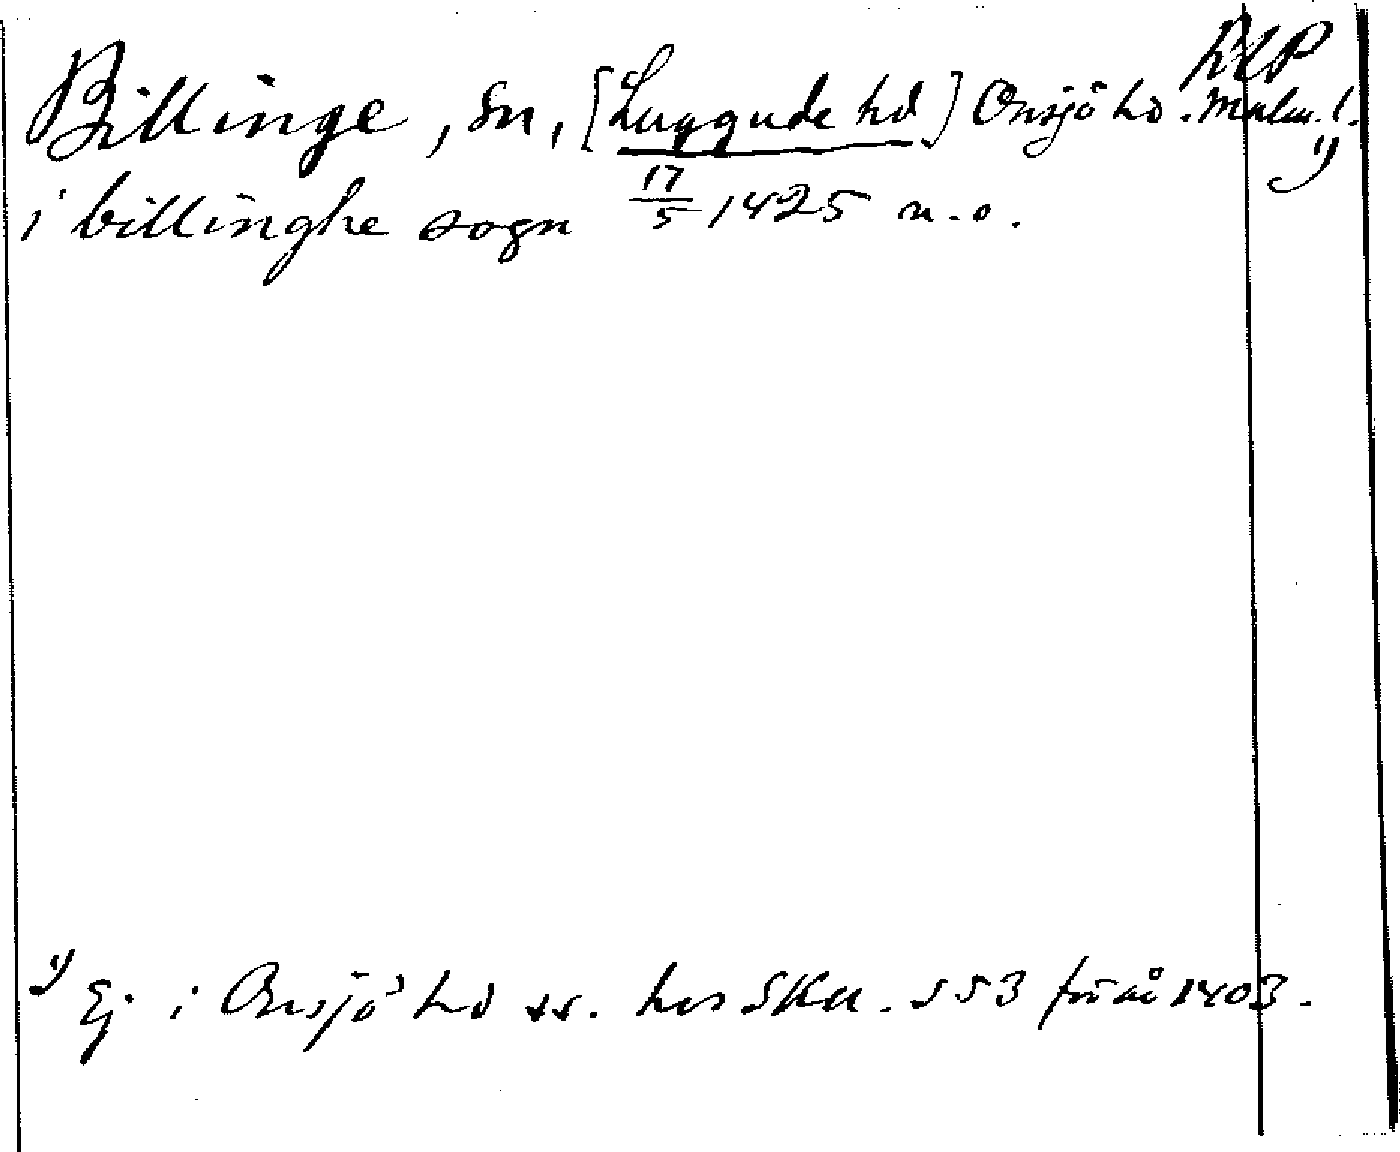 Billinge, Sn, [Luggude hd] Onsjö hd. Malm. l. 1)
i billinghe sogn 17/5 1425 n. o.
1) Ej i Onsjö hd hos S 53 från 1403.